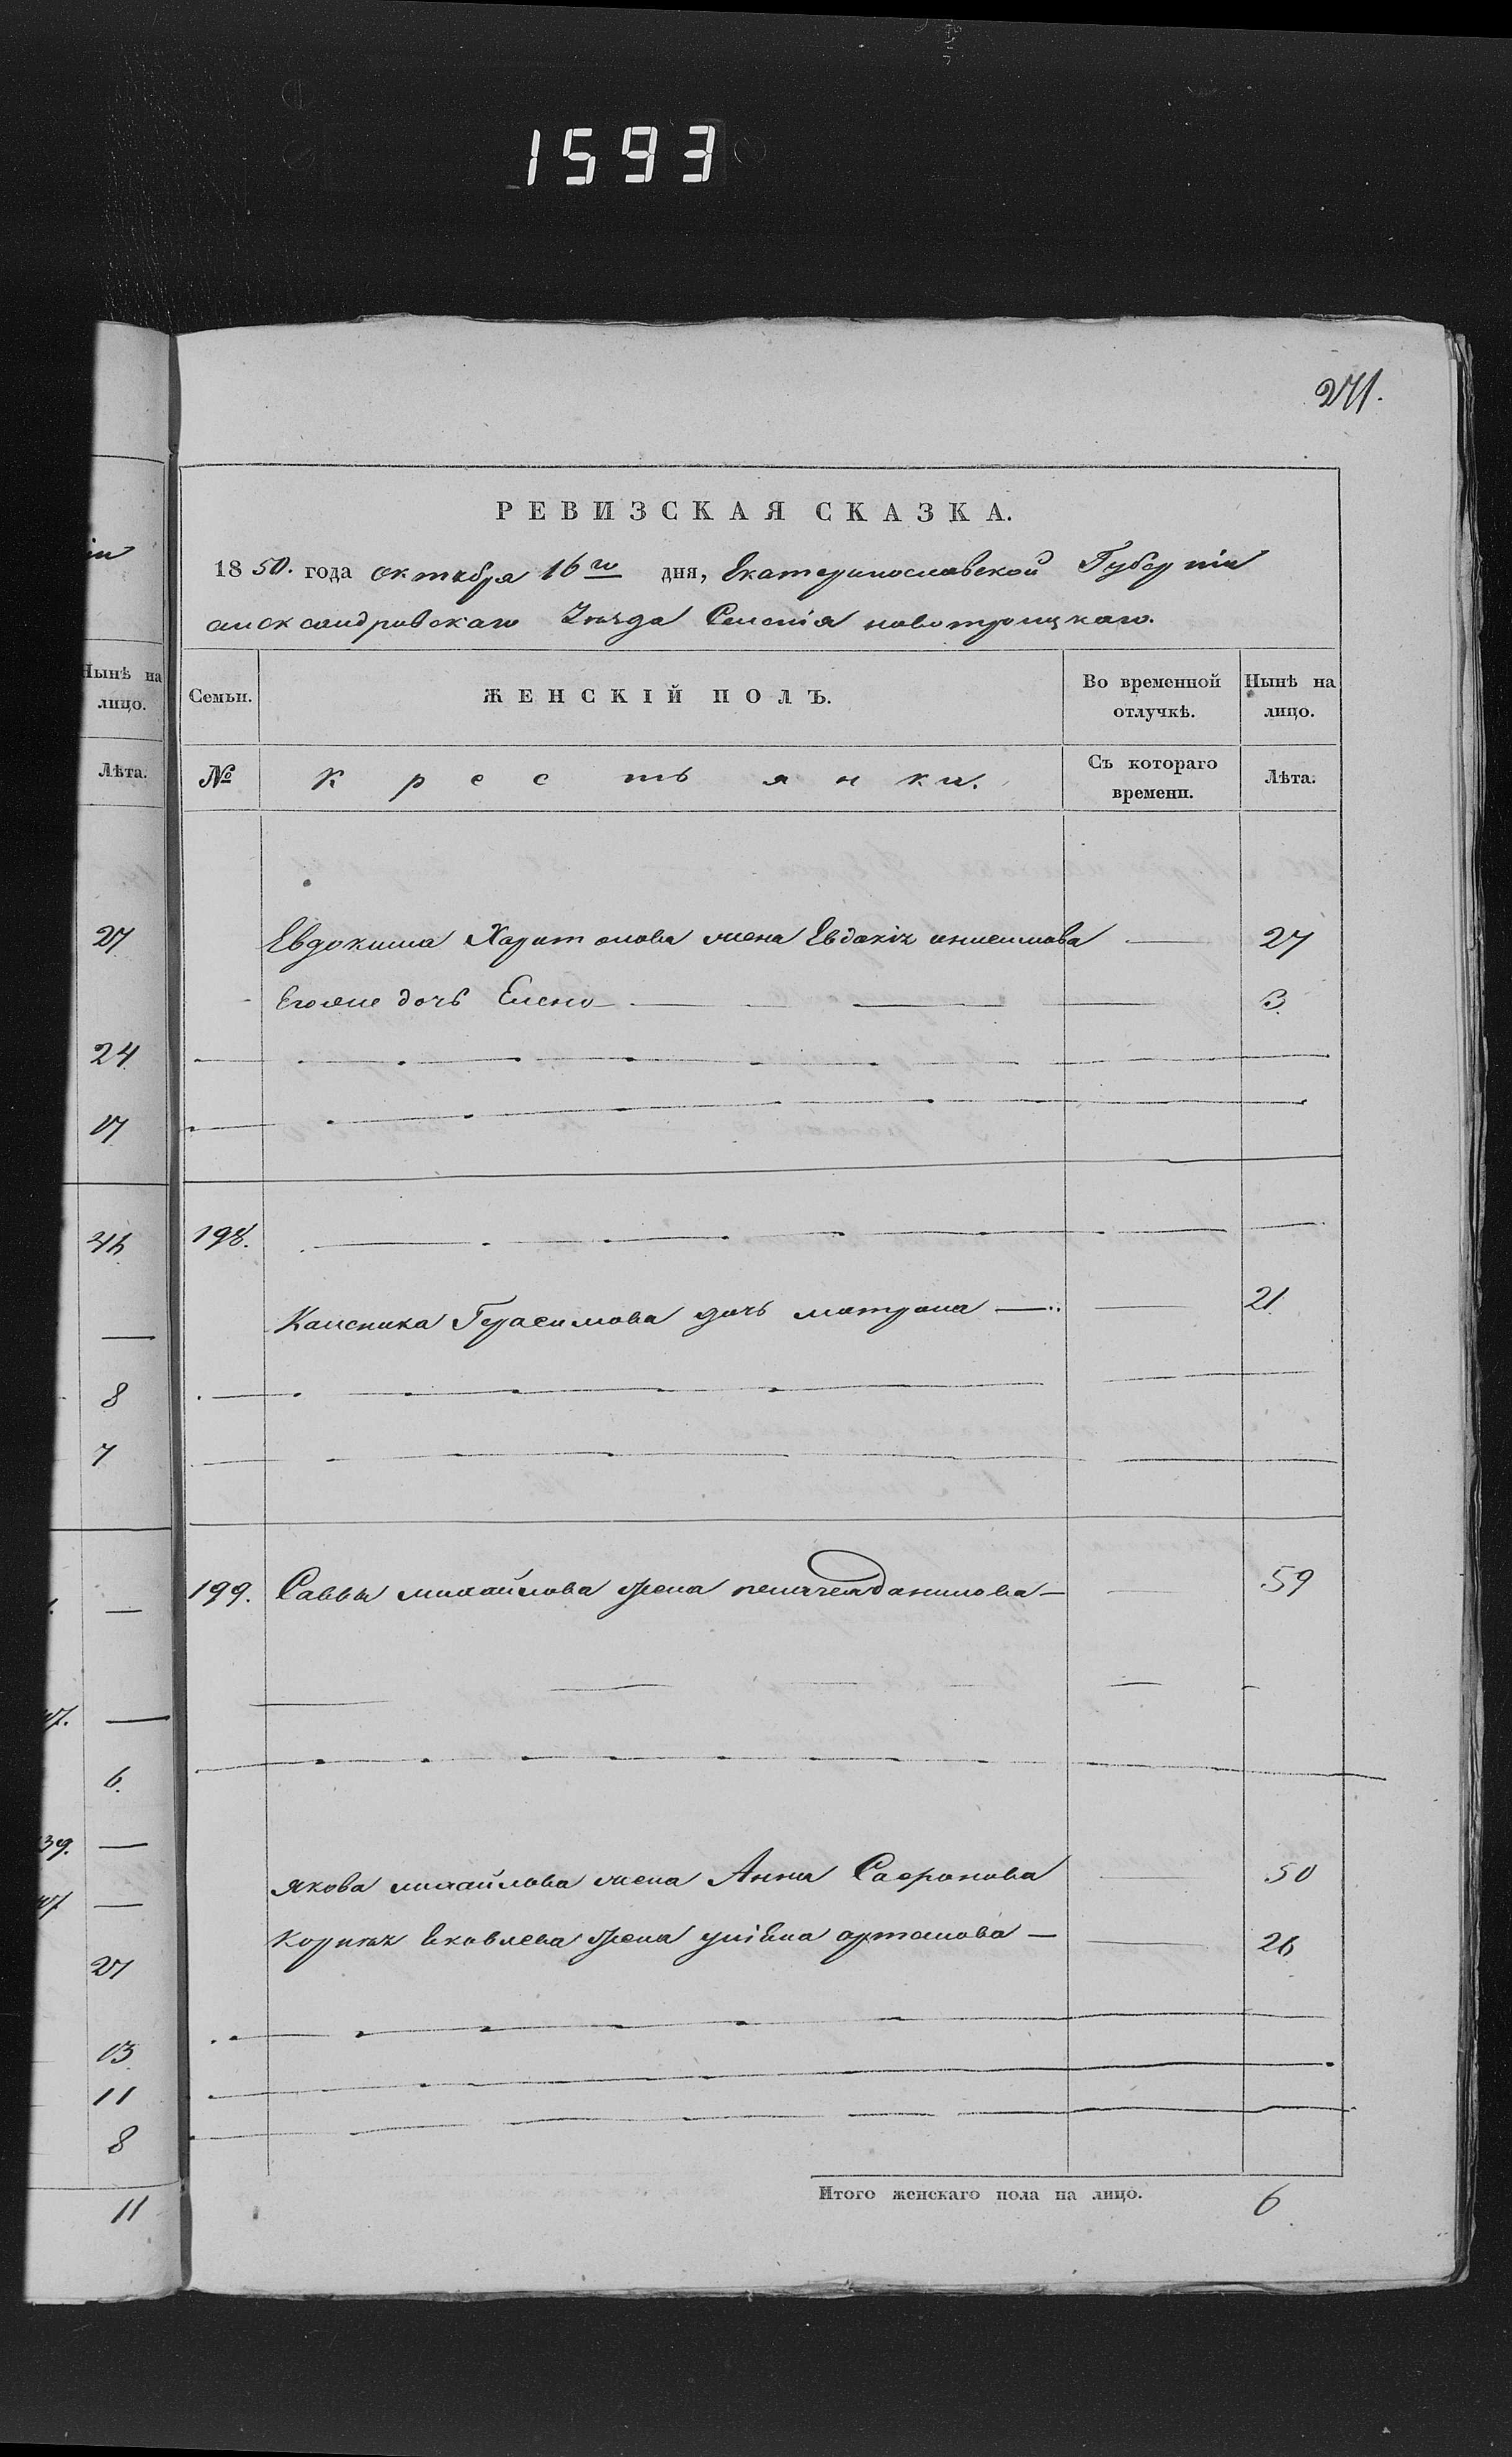 1593
271.
РЕВИЗСКАЯ СКАЗКА.
1850. года октября 16го дня, Екатеринославской Губерніи
александровскаго Уѣзда Селенія новотроицкаго.
Нынѣ на лицо.
Лѣта.
Семьи. ЖЕНСКІЙ ПОЛЪ. Во временной отлучкѣ. Нынѣ на лицо.
№ Крестьянки. Съ котораго времени. Лѣта.
27 Евдокима Харитонова жена Евдокія анисимова — 27
Егоже дочь Елена — 3
24
17
198.
Калсника Герасимова дочь матрона — 21
8
7
199. Саввы михайлова жена пелагея данилова — 59
6.
39.
якова михайлова жена Анна Сафронова — 50
Корнея Яковлева жена уліяна артамонова — 26
27
13
11
8
Итого женскаго пола на лицо. 6
11